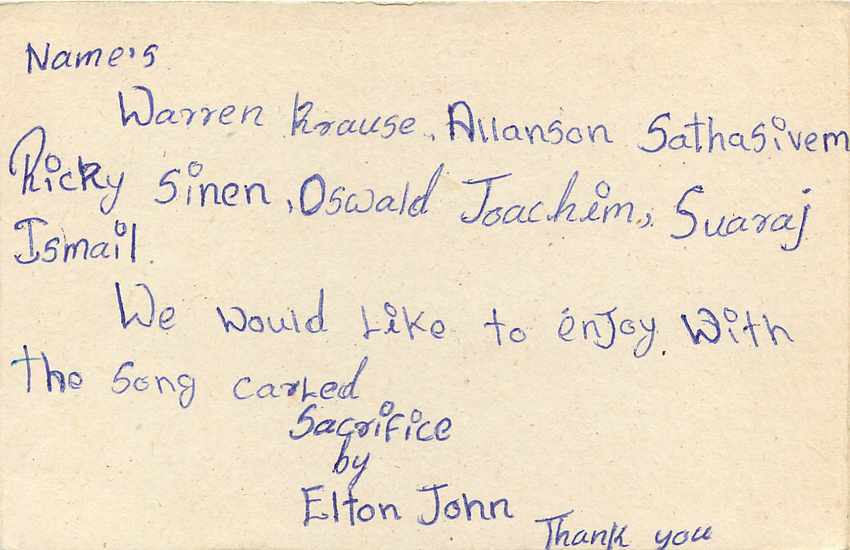 Name's
Warren Krause, Allanson Sathasivem
Ricky Sinen, Oswald Joachim, Suaraj
Ismail.
We would Like to enjoy with
the song carled
Sacrifice
by
Elton John
Thank you